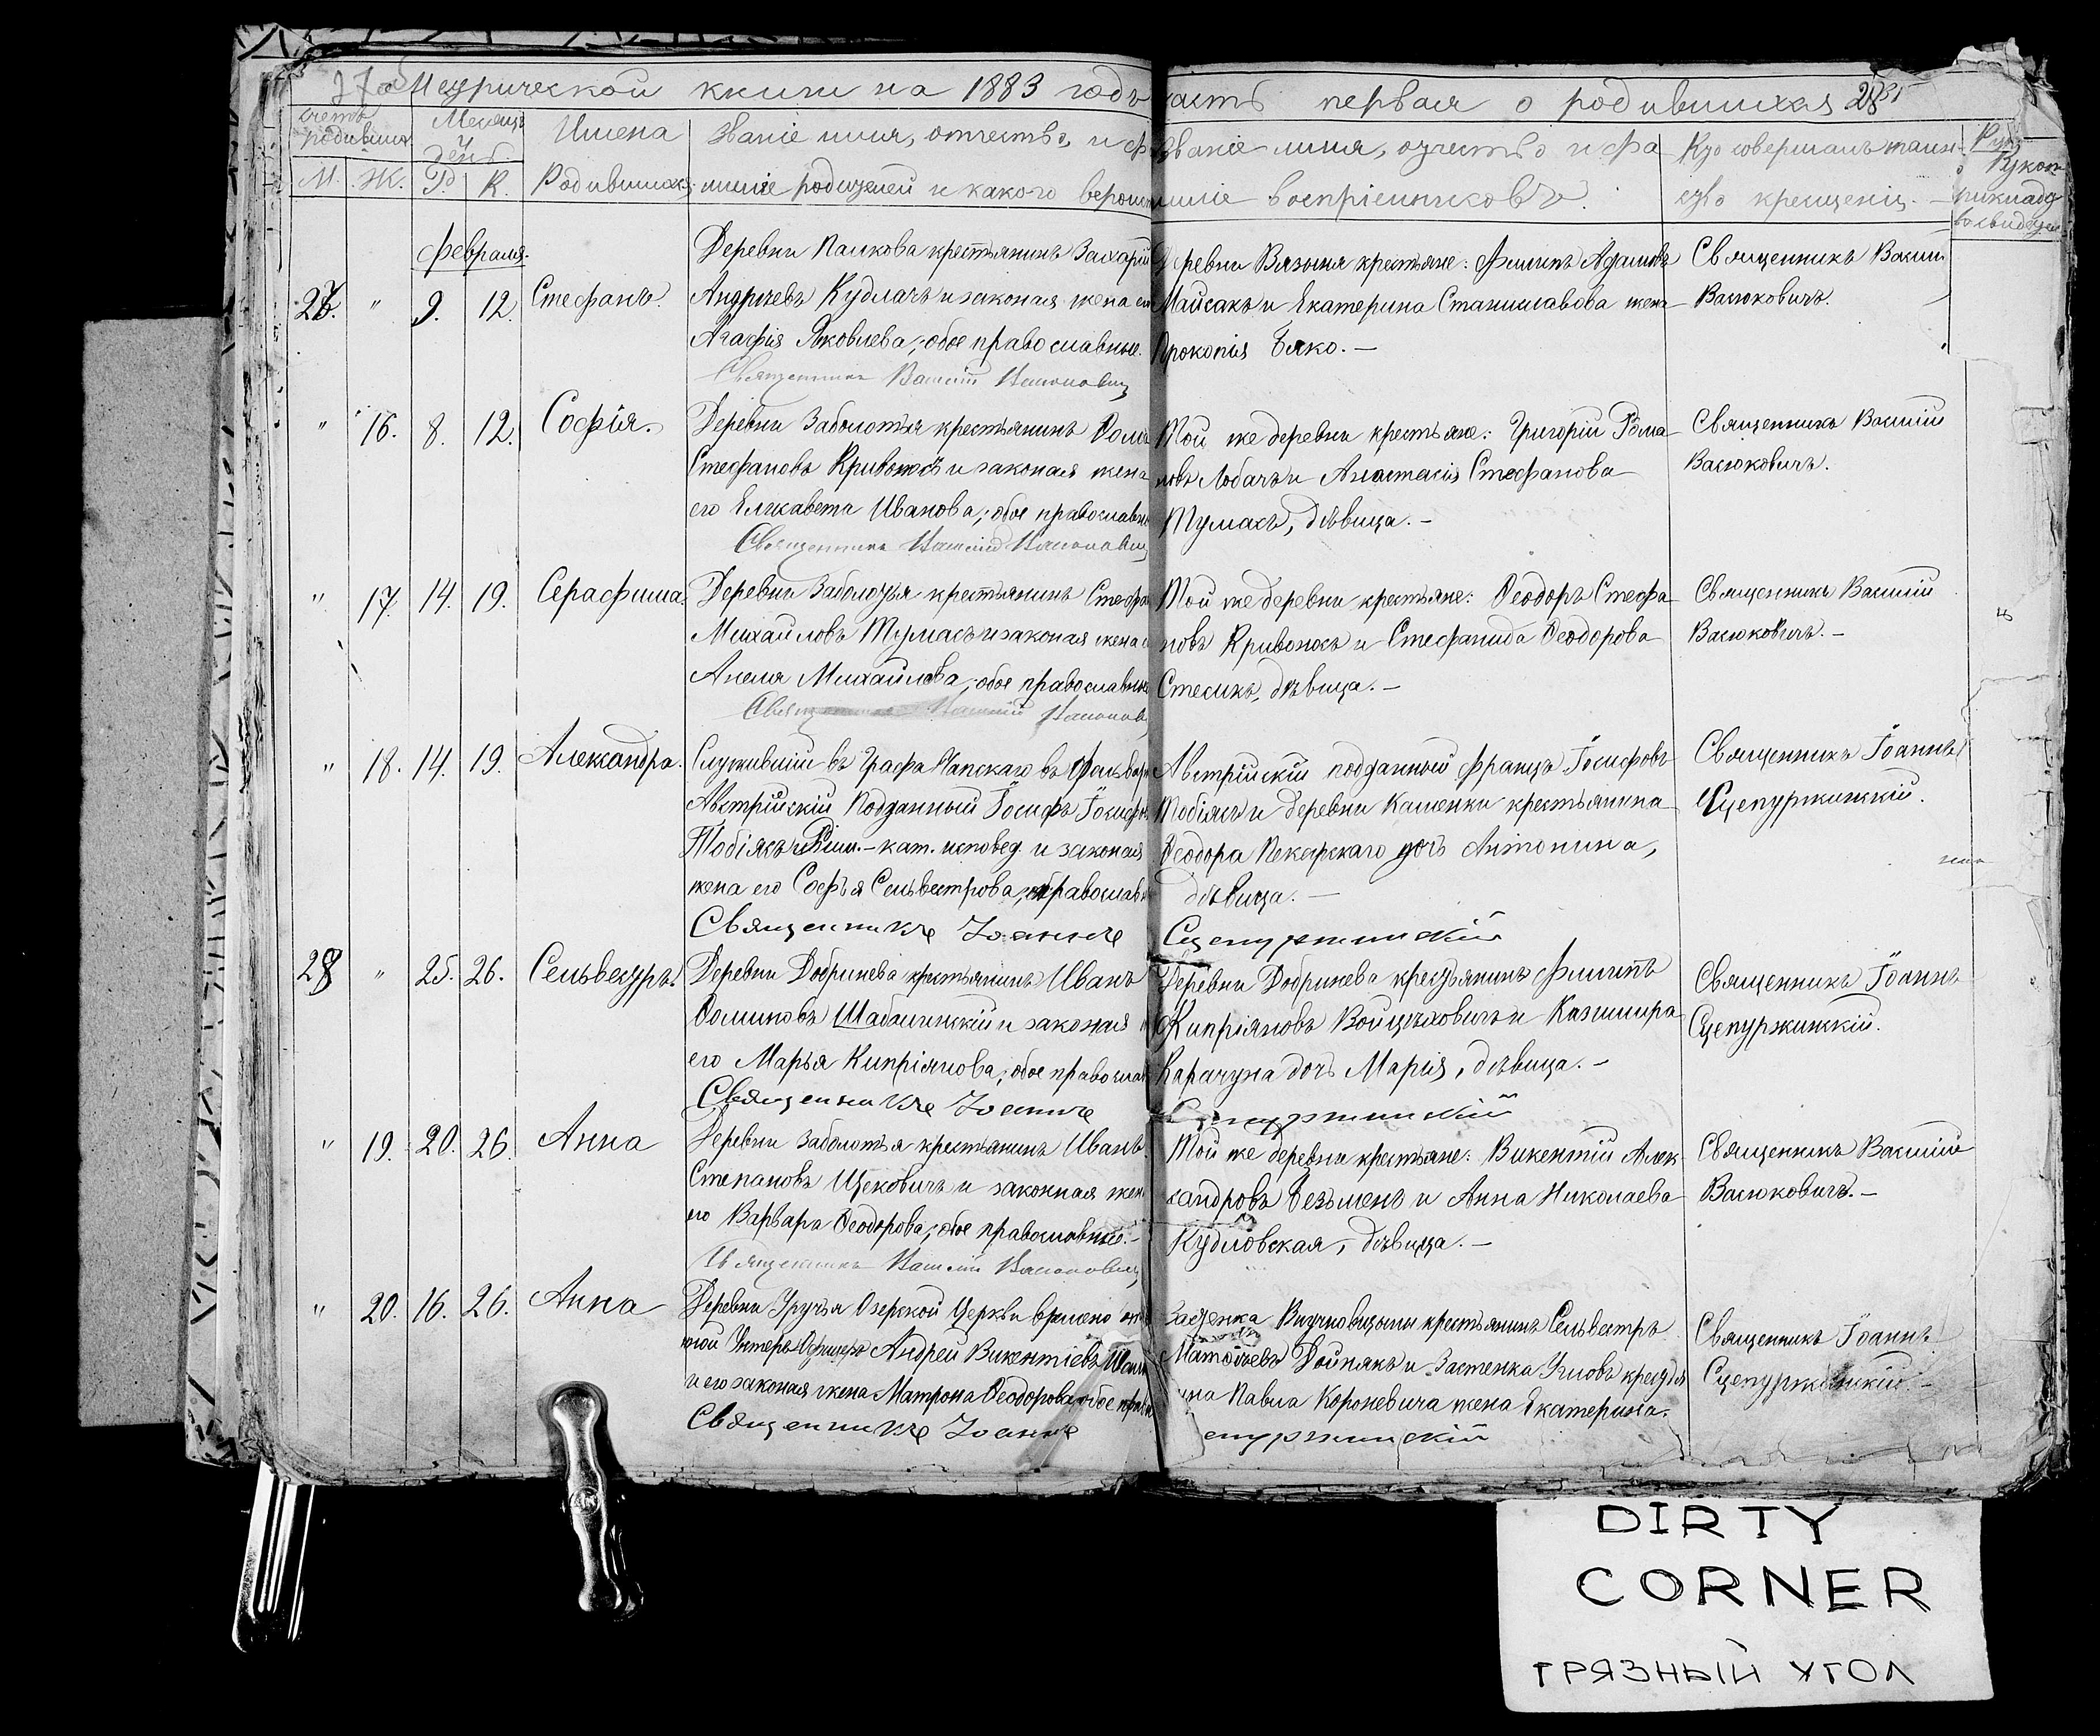 Метрической книги на 1883 годъ
часть первая о родившихся 28
счетъ родившихся
Месяцъ и день
Имена
Званіе имя, отчество, и ф
Званіе имя, отчество и фа
Кто совершалъ таин-
М. Ж. Р. К.
Родившихся
миліе родителей и какого вероис
миліе воспріемниковъ.
ство крещенія.
Февраля.
27. " 9. 12. Стефанъ.
Деревни Пашкова крестьянинъ Захарій
Андреевъ Кудлачъ и законая жена его
Агафія Яковлева; обое православные.
Священникъ Василій Васюковичъ
Деревни Вязыня крестьяне: Филипъ Адамовъ
Майсакъ и Екатерина Станиславова жена
Прокопія Бяко. —
Священникъ Васил
Васюковичъ.
" 16. 8. 12. Софія.
Деревни Заболотья крестьянинъ Фома
Стефановъ Кривоносъ и законая жена
его Елисавета Иванова; обое православн
Священникъ Василій Васюковичъ
Той же деревни крестьяне: Григорій Рома
новъ Лобачъ и Анастасія Стефанова
Тумасъ, дѣвица. —
Священникъ Василій
Васюковичъ.
" 17. 14. 19. Серафима.
Деревни Заболотья крестьянинъ Стефан
Михайловъ Тумасъ и законая жена
Анеля Михайлова; обое православные
Священникъ Василій Васюков
Той же деревни крестьяне: Ѳеодоръ Стефа
новъ Кривоносъ и Стефанида Ѳеодорова
Стесикъ, дѣвица. —
Священникъ Василій
Васюковичъ. —
" 18. 14. 19. Александра.
Служившій въ Графа Чапскаго въ Фольвар
Австрійскій Подданный Іосифъ Іосифов
Тобіясъ Рим.-кат. исповед. и законая
жена его Софья Сельвестрова, православн
Священникъ Іоаннъ
Австрійскій подданный Францъ Іосифовъ
Тобіясъ и деревни Каменки крестьянина
Ѳеодора Пекарскаго дочь Антонина,
дѣвица. —
Сцепуржинскій
Священникъ Іоаннъ
Сцепуржинскій.
28 " 25. 26. Сельвестръ.
Деревни Добринева крестьянинъ Иванъ
Фоминовъ Шабалинскій и законая
его Марья Кипріянова; обое православ
Священникъ Іоаннъ
Деревни Добринева крестьянинъ Филипъ
Кипріяновъ Войцѣховичъ и Казимира
Карачуна дочь Марія, дѣвица. —
Сцепуржинскій
Священникъ Іоаннъ
Сцепуржинскій.
" 19. 20. 26. Анна
Деревни Заболотья крестьянинъ Иванъ
Степановъ Щековичъ и законная жен
его Варвара Ѳеодорова; обое православные. —
Священникъ Василій Васюковичъ
Той же деревни крестьяне: Викентій Алек
сандровъ Безменъ и Анна Николаева
Кудловская, дѣвица. —
Священникъ Василій
Васюковичъ. —
" 20. 16. 26. Анна
Деревни Уручья Озерской Церкви времено от
ной Унтеръ Офицеръ Андрей Викентіевъ
и его законая жена Матрона Ѳеодорова обое прав
Священникъ Іоаннъ
Застенка крестьянинъ Сельвестръ
Матвѣевъ Войнякъ и Застенка Угловъ крестья
ина Павла Короневича жена Екатерина.
епуржинскій
Священникъ Іоаннъ
Сцепуржинскій. —
DIRTY
CORNER
ГРЯЗНЫЙ УГОЛ